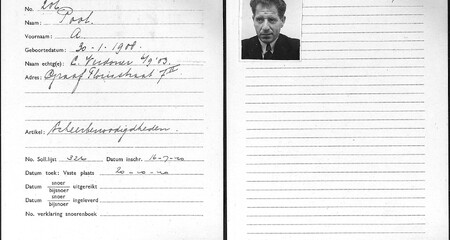 No.
Naam: Pool.
Voornaam: A
Geboortedatum: 30-1-1908.
Naam echtg(e): C. 6/9'03.
Adres: Graaf Florisstraat 7
Artikel: Scheerbenoodigdheden.
No. Soll.lijst 322 Datum inschr. 16-7-20
Datum toek: Vaste plaats 20-10-20
Datum snoer
bijsnoer uitgereikt
Datum snoer
bijsnoer ingeleverd
No. verklaring snoerenboek